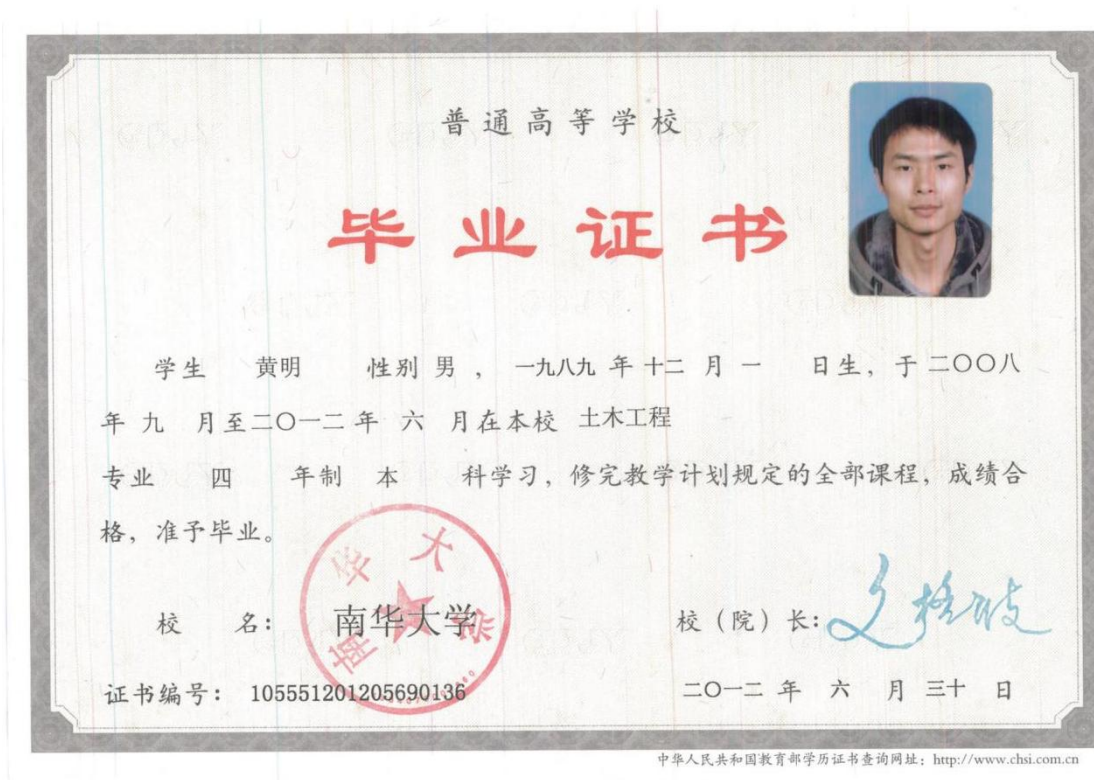 普通高等学校
毕业证书
学生 黄明 性别 男 ， 一九八九 年 十二 月 一 日生，于 二〇〇八
年 九 月至二〇一二 年 六 月在本校 土木工程
专业 四 年制 本 科学习，修完教学计划规定的全部课程，成绩合
格，准予毕业。
南华大学
校 名： 南华大学 校（院）长：
证书编号： 105551201205690136 二〇一二 年 六 月 三十 日
中华人民共和国教育部学历证书查询网址：http://www.chsi.com.cn